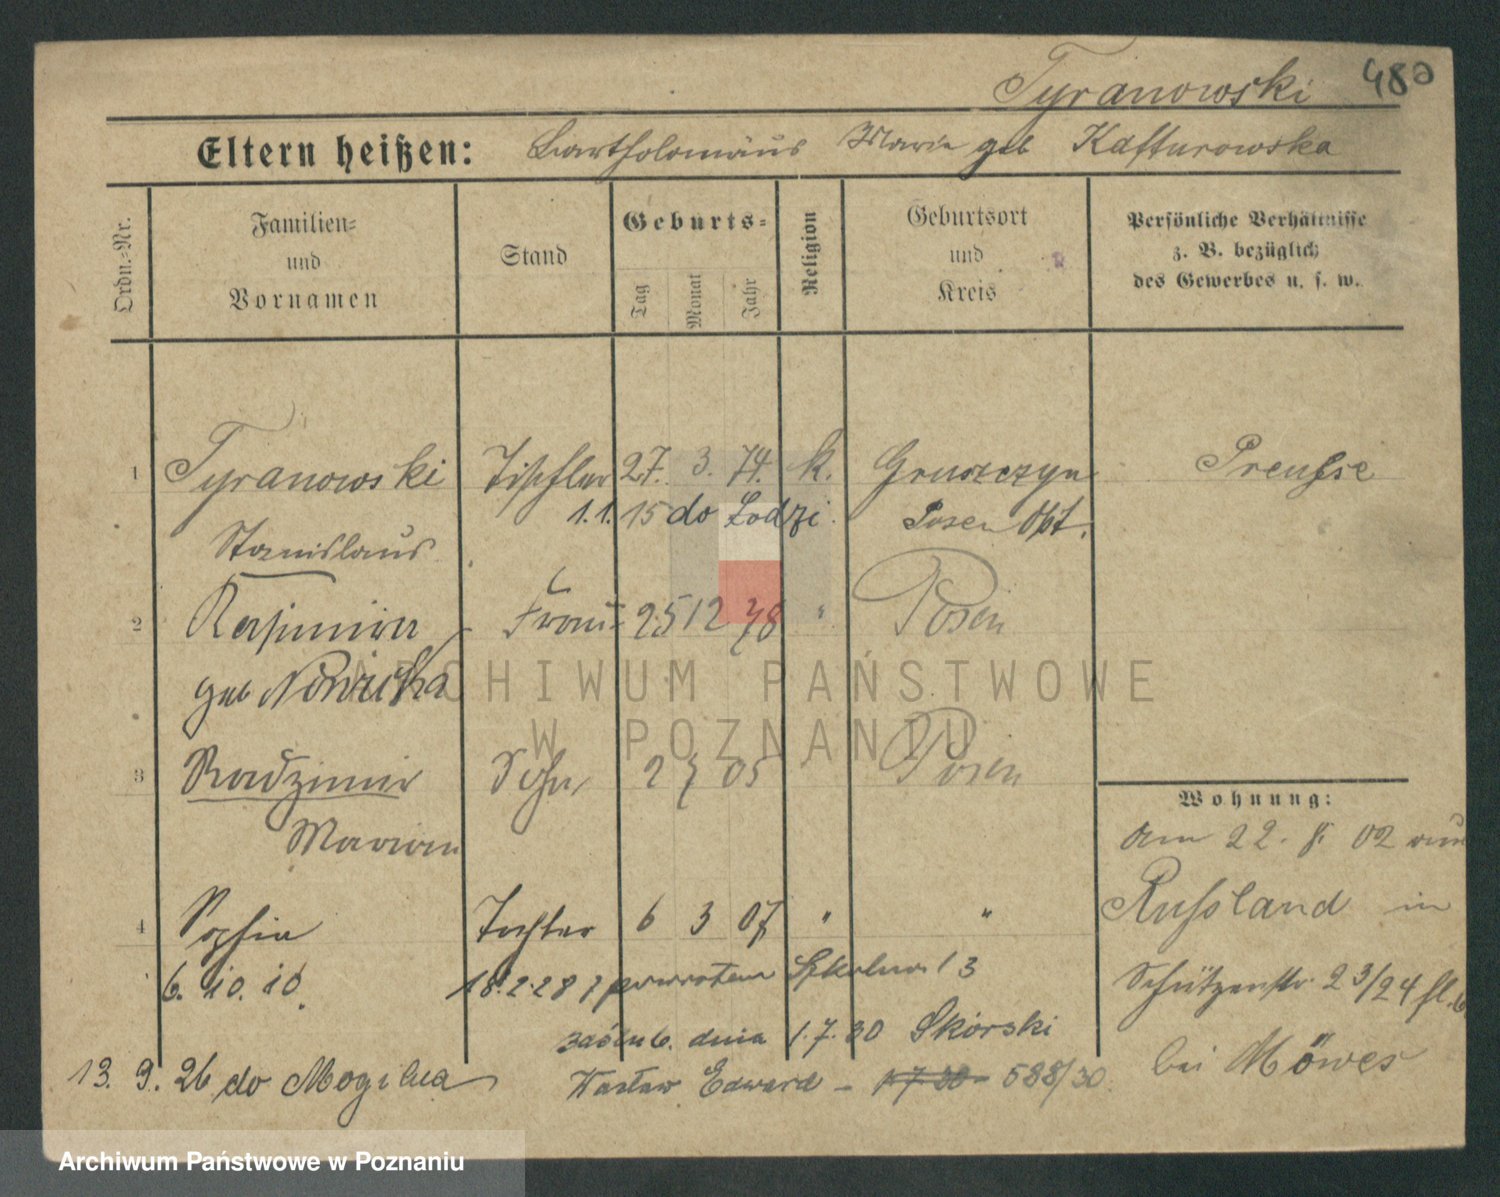 Tyranowski 480
Eltern heißen: Bartholomäus Marie geb Kafturowska
Ordn.-Nr.
Familien- und Vornamen
Stand
Geburts-
Tag Monat Jahr
Religion
Geburtsort und Kreis
Persönliche Verhältnisse z. B. bezüglich des Gewerbes u. s. w.
1 Tyranowski Tischler 27. 3. 74. k. Gruszczyn Preuße
1.1.15 do Łodzi Posen Ost.
Stanislaus
2 Kasimira Frau 25 12 78 " Posen
geb Nowicka
3 Radzimir Sohn 2 7 05 Posen
Marian
Wohnung:
am 22. 8. 02 aus
4 Sophia Tochter 6 3 07 " " Russland in
6. 10. 10. 18.2.28 z powrotem Szkolna 13
Schützenstr. 23/24
zaślub. dnia 1.7.30 Skórski
13. 9. 26 do Mogilna
Wacław Edward - 1.7.30 - 588/30.
bei Möwes
ARCHIWUM PAŃSTWOWE
W POZNANIU
Archiwum Państwowe w Poznaniu